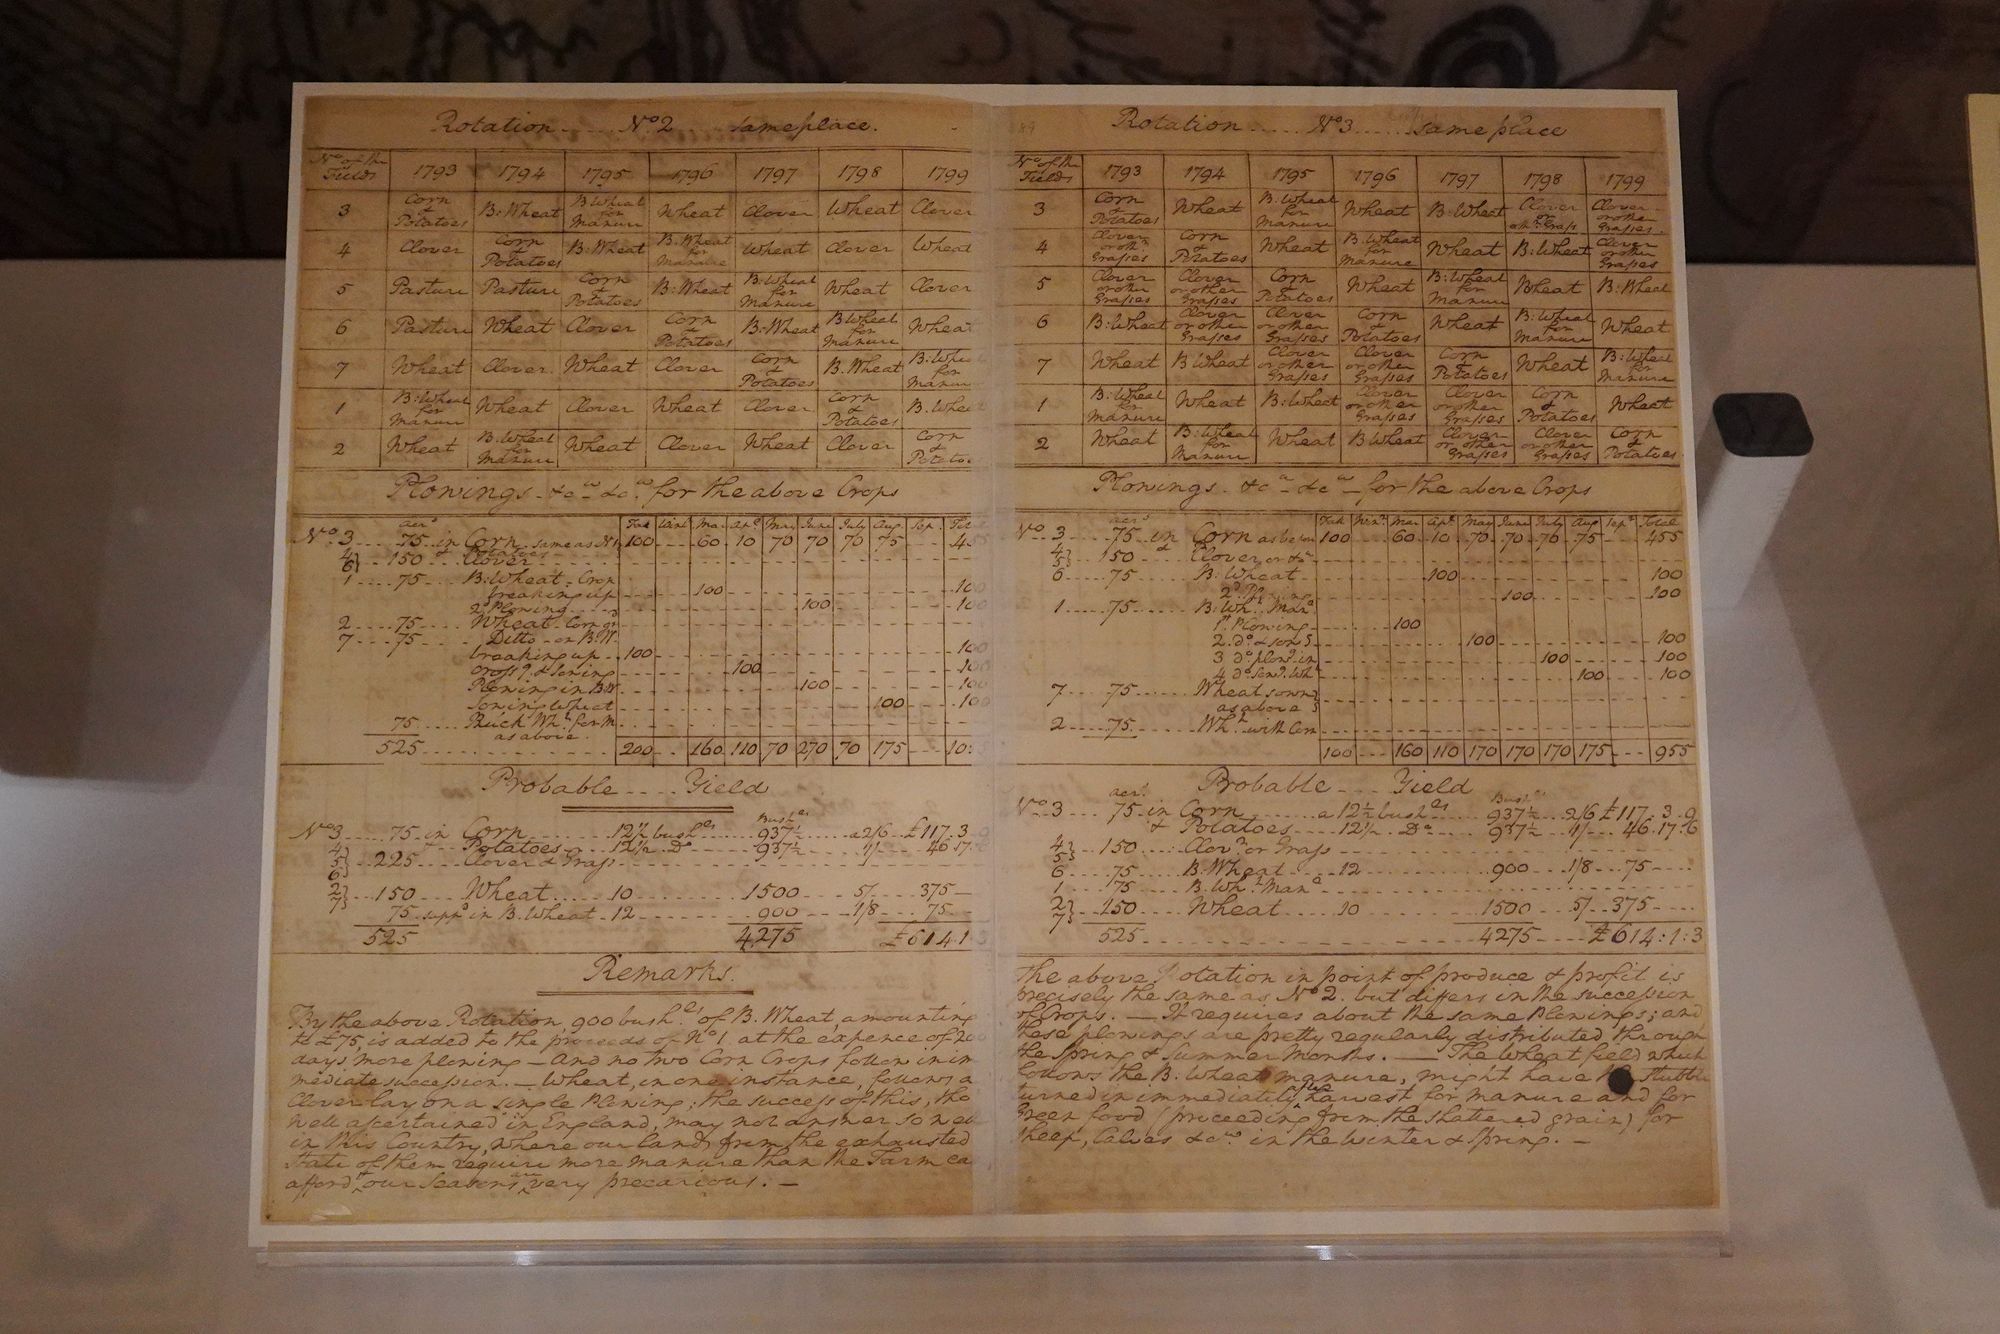 Rotation ..... No. 2 .... same place.
No. of the Fields 1793 1794 1795 1796 1797 1798 1799
3 Corn & Potatoes B: Wheat B Wheat for Manure Wheat Clover Wheat Clover
4 Clover Corn & Potatoes B: Wheat B. Wheat for Manure Wheat Clover Wheat
5 Pasture Pasture Corn & Potatoes B: Wheat B: Wheat for Manure Wheat Clover
6 Pasture Wheat Clover Corn & Potatoes B: Wheat B Wheat for Manure Wheat
7 Wheat Clover. Wheat Clover Corn & Potatoes B. Wheat B: Whea for Manur
1 B: Wheat for Manure Wheat Clover Wheat Clover Corn & Potatoes B. Whea
2 Wheat B. Wheat for Manure Wheat Clover Wheat Clover Corn & Potato
Plowings - &ca &ca for the above Crops
acrs Fall Wint Mar Apl May June July Aug Sep. Tot
No. 3 75 in Corn same as No 1 100 60 10 70 70 70 75 45
& Potatoes
4 6} 150 Clover
1 75 B: Wheat - Crop
breaking up 100 10
2d Plowing 100 10
2 75 Wheat - Corn gr
7 75 Ditto - on B. W.
breaking up 100 10
crossg & sowing 100 10
Plowing in B W 100 10
sowing Wheat 100 10
75 Buck Wht for M
as above.
525 200 160 110 70 270 70 175 10
Probable .... Yield
Bushls
No 3 75 in Corn 12½ bushls 937½ a 2/6 £117. 3
Potatoes 12½ Do 937½ 1/ 46 17.
4 5 6} 225 Clover & Grass
2 7} 150 Wheat 10 1500 5/ 375
75 suppd in B. Wheat 12 900 1/8 75
525 4275 £614.1.3
Remarks.
By the above Rotation, 900 bushls of B. Wheat, amounting
to £75, is added to the proceeds of No 1. at the expence of
days more plowing — And no two Corn Crops follow in im
mediate succession. — Wheat, in one instance, follows a
Clover lay on a single Plowing; the success of this, tho
well ascertained in England, may not answer so
in this Country, where our lands from the exhausted
State of them require more manure than the Farm ca
afford & our Seasons are very precarious. —
Rotation ..... No 3 ..... same place
No. of the Fields 1793 1794 1795 1796 1797 1798 1799
3 Corn & Potatoes Wheat B. Wheat for Manure Wheat B: Wheat Clover or othr Grass Clover or other Grasses.
4 Clover or othr Grasses Corn & Potatoes Wheat B. Wheat for Manure Wheat B: Wheat Clover or other Grasses
5 Clover or other Grasses Clover or other Grasses Corn & Potatoes Wheat B: Wheat for Manure Wheat B: Wheat
6 B: Wheat Clover or other Grasses Clover or other Grasses Corn & Potatoes Wheat B. Wheat for Manure Wheat
7 Wheat B Wheat Clover or other Grasses Clover or other Grasses Corn & Potatoes Wheat B: Wheat for Manure
1 B: Wheat for Manure Wheat B: Wheat Clover or other Grasses Clover or other Grasses Corn & Potatoes Wheat
2 Wheat B: Wheat for Manure Wheat B Wheat Clover or other Grasses Clover or other Grasses Corn & Potatoes
Plowings. &ca &ca — for the above Crops
acrs Fall Winr Mar Apl May June July Aug Sepr Total
No. 3 75 in Corn as before 100 60 10 70 70 70 75 455
4 5} 150 & Clover or &ca
6 75 B: Wheat 100 100
2d Plowing 100 100
1 75 B: Wht Mane
1st Plowing 100
2. do & sowg 100 100
3 do plowg in 100 100
4 do sowg Wht 100 100
7 75 Wheat sown
as above
2 75 Wht with Corn
100 160 110 170 170 170 175 955
Probable .... Yield
acrs Bushls
No. 3 75 in Corn a 12½ bushls 937½ 2/6 £117. 3. 9
& Potatoes 12½ Do 937½ 1/ 46. 17. 6
4 5} 150 Clovr or Grass
6 75 B. Wheat 12 900 1/8 75
1 75 B. Wht Mane
2 7} 150 Wheat 10 1500 5/ 375
525 4275 £614:1:3
The above Rotation in point of produce & profit is
precisely the same as No 2. but differs in the succession
of Crops. — It requires about the same Plowings; and
these plowings are pretty regularly distributed through
the Spring & Summer Months. — The Wheat field which
follows the B. Wheat manure, might have the stubble
turned in immediately after harvest for manure and for
Green food (proceeding from the shattered grain) for
sheep, Calves &ca in the Winter & Spring. —